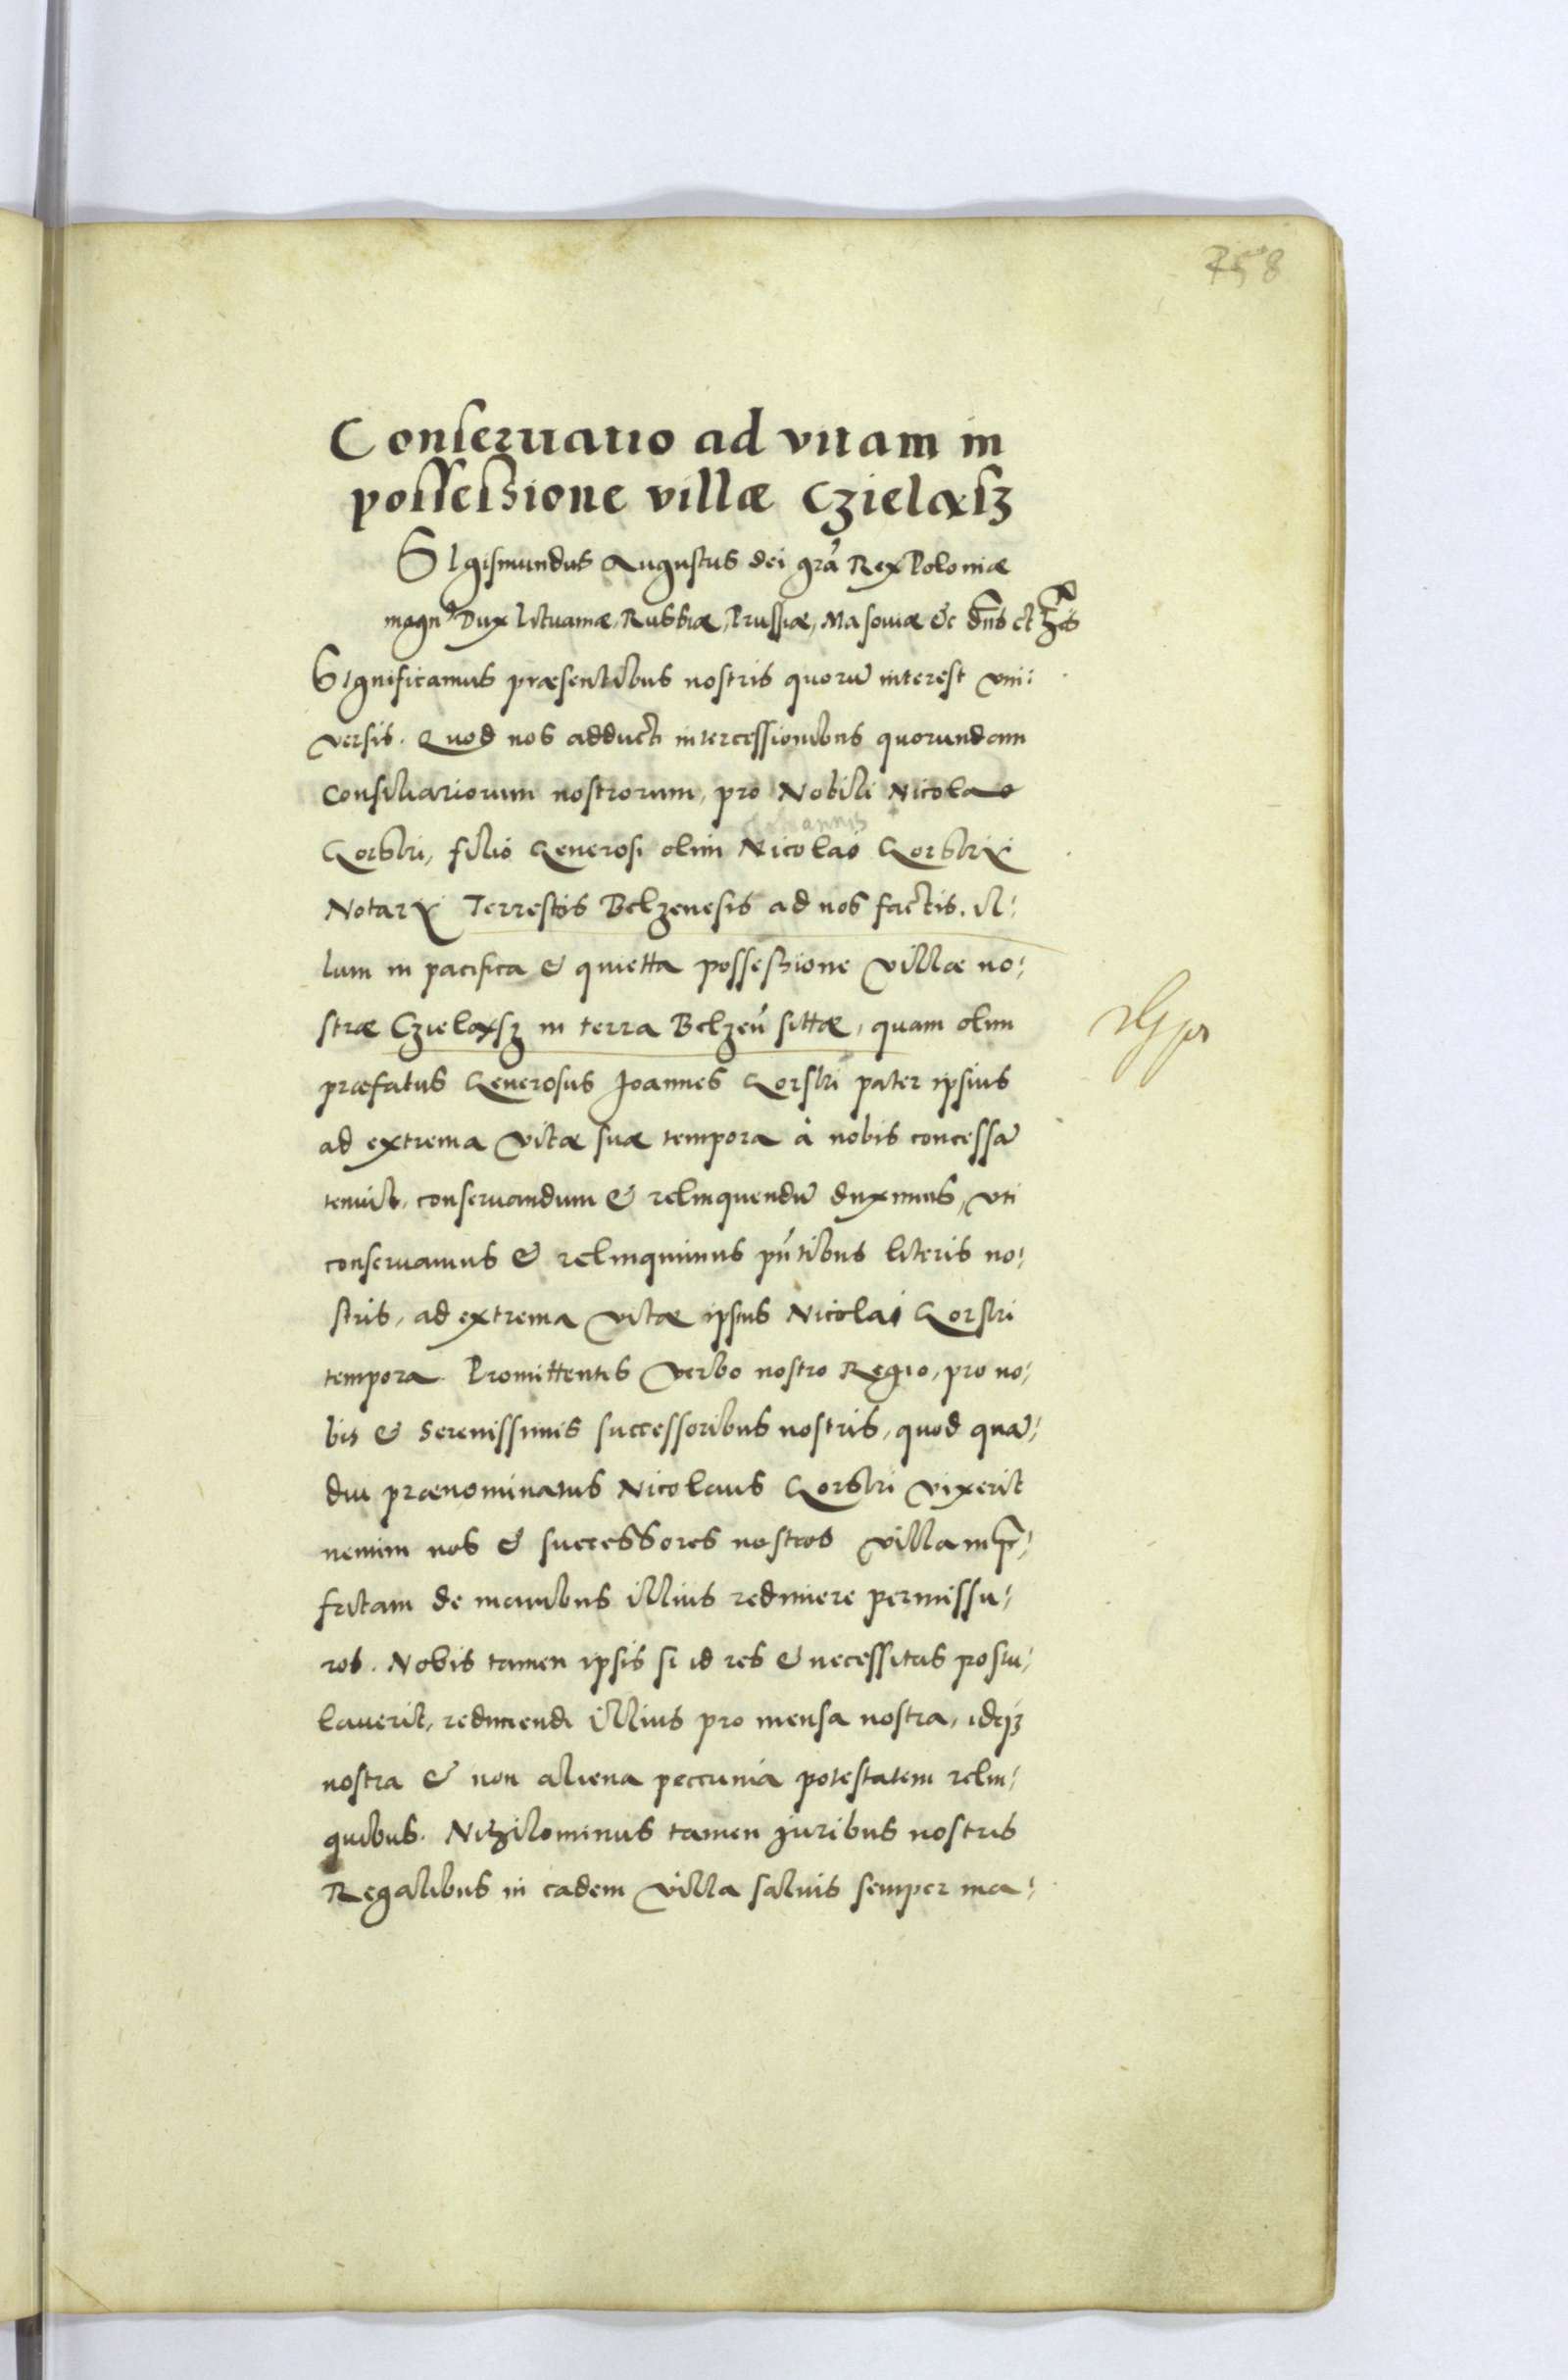 258
Conseruatio ad vitam in
possessione villæ Czieląsz
SIgismundus Augustus dei gra Rex Poloniæ
magn9 Dux Lituaniæ, Russiæ, Prussiæ, Masouiæ &c dns et hæs
SIgnificamus præsentibus nostris quorū interest vni:
versis. Quod nos adducti intercessionibus quorundam
Consiliariorum nostrorum, pro Nobili Nicolao
Johannis
Gorski, filio Generosi olim Nicolai Gorskij
Notarij Terrestris Belzenesis ad nos factis. Il:
lum in pacifica & quietta possessione villæ no:
stræ Czieląsz in terra Belzeń sittæ, quam olim
præfatus Generosus Joannes Gorski pater ipsius
ad extrema vitæ suæ tempora à nobis concessā
tenuit, conseruandum & relinquendū duximus, vti
conseruamus & relinquimus pn̄tibus literis no:
stris, ad extrema vitæ ipsius Nicolai Gorski
tempora. Promittentes verbo nostro Regio, pro no:
bis & Serenissimis successoribus nostris, quod quā:
diu prænominatus Nicolaus Gorski vixerit
nemini nos & successores nostros villam p̄:
fatam de manibus illius redimere permissu:
ros. Nobis tamen ipsis si id res & necessitas postu:
lauerit, redimendi illius pro mensa nostra, idq3
nostra & non aliena peccunia potestatem relin:
quibus. Nihilominus tamen juribus nostris
Regalibus in eadem villa saluis semper ma: